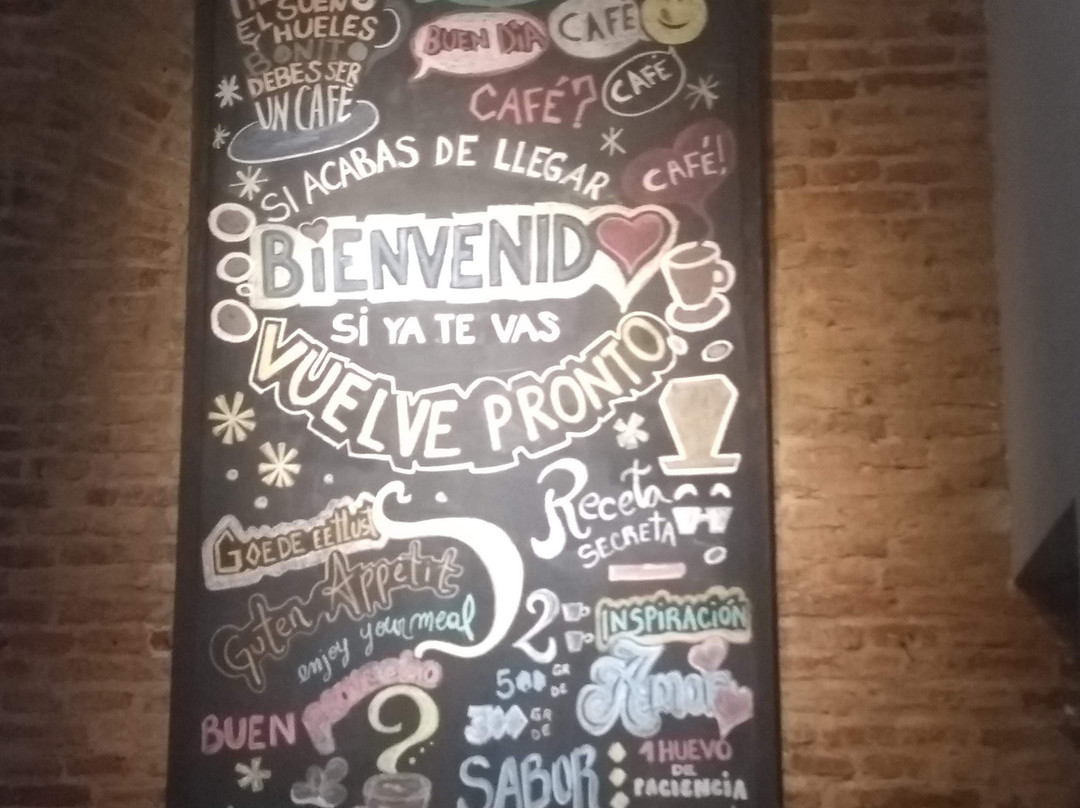 EL SUEÑO
Y HUELES
BONITO
DEBES SER
UN CAFÉ
BUEN DÍA
CAFÉ
CAFÉ?
CAFÉ
CAFÉ!
SI ACABAS DE LLEGAR
BiENVENID
Si YA TE VAS
VUELVE PRONTO
GOEDE EETLUST
Guten Appetit
enjoy your meal
BUEN PROVECHO
Receta
SECRETA
2
INSPIRACIÓN
500 GR DE
Amor
300 GR DE
SABOR
1 HUEVO
DE
PACIENCIA